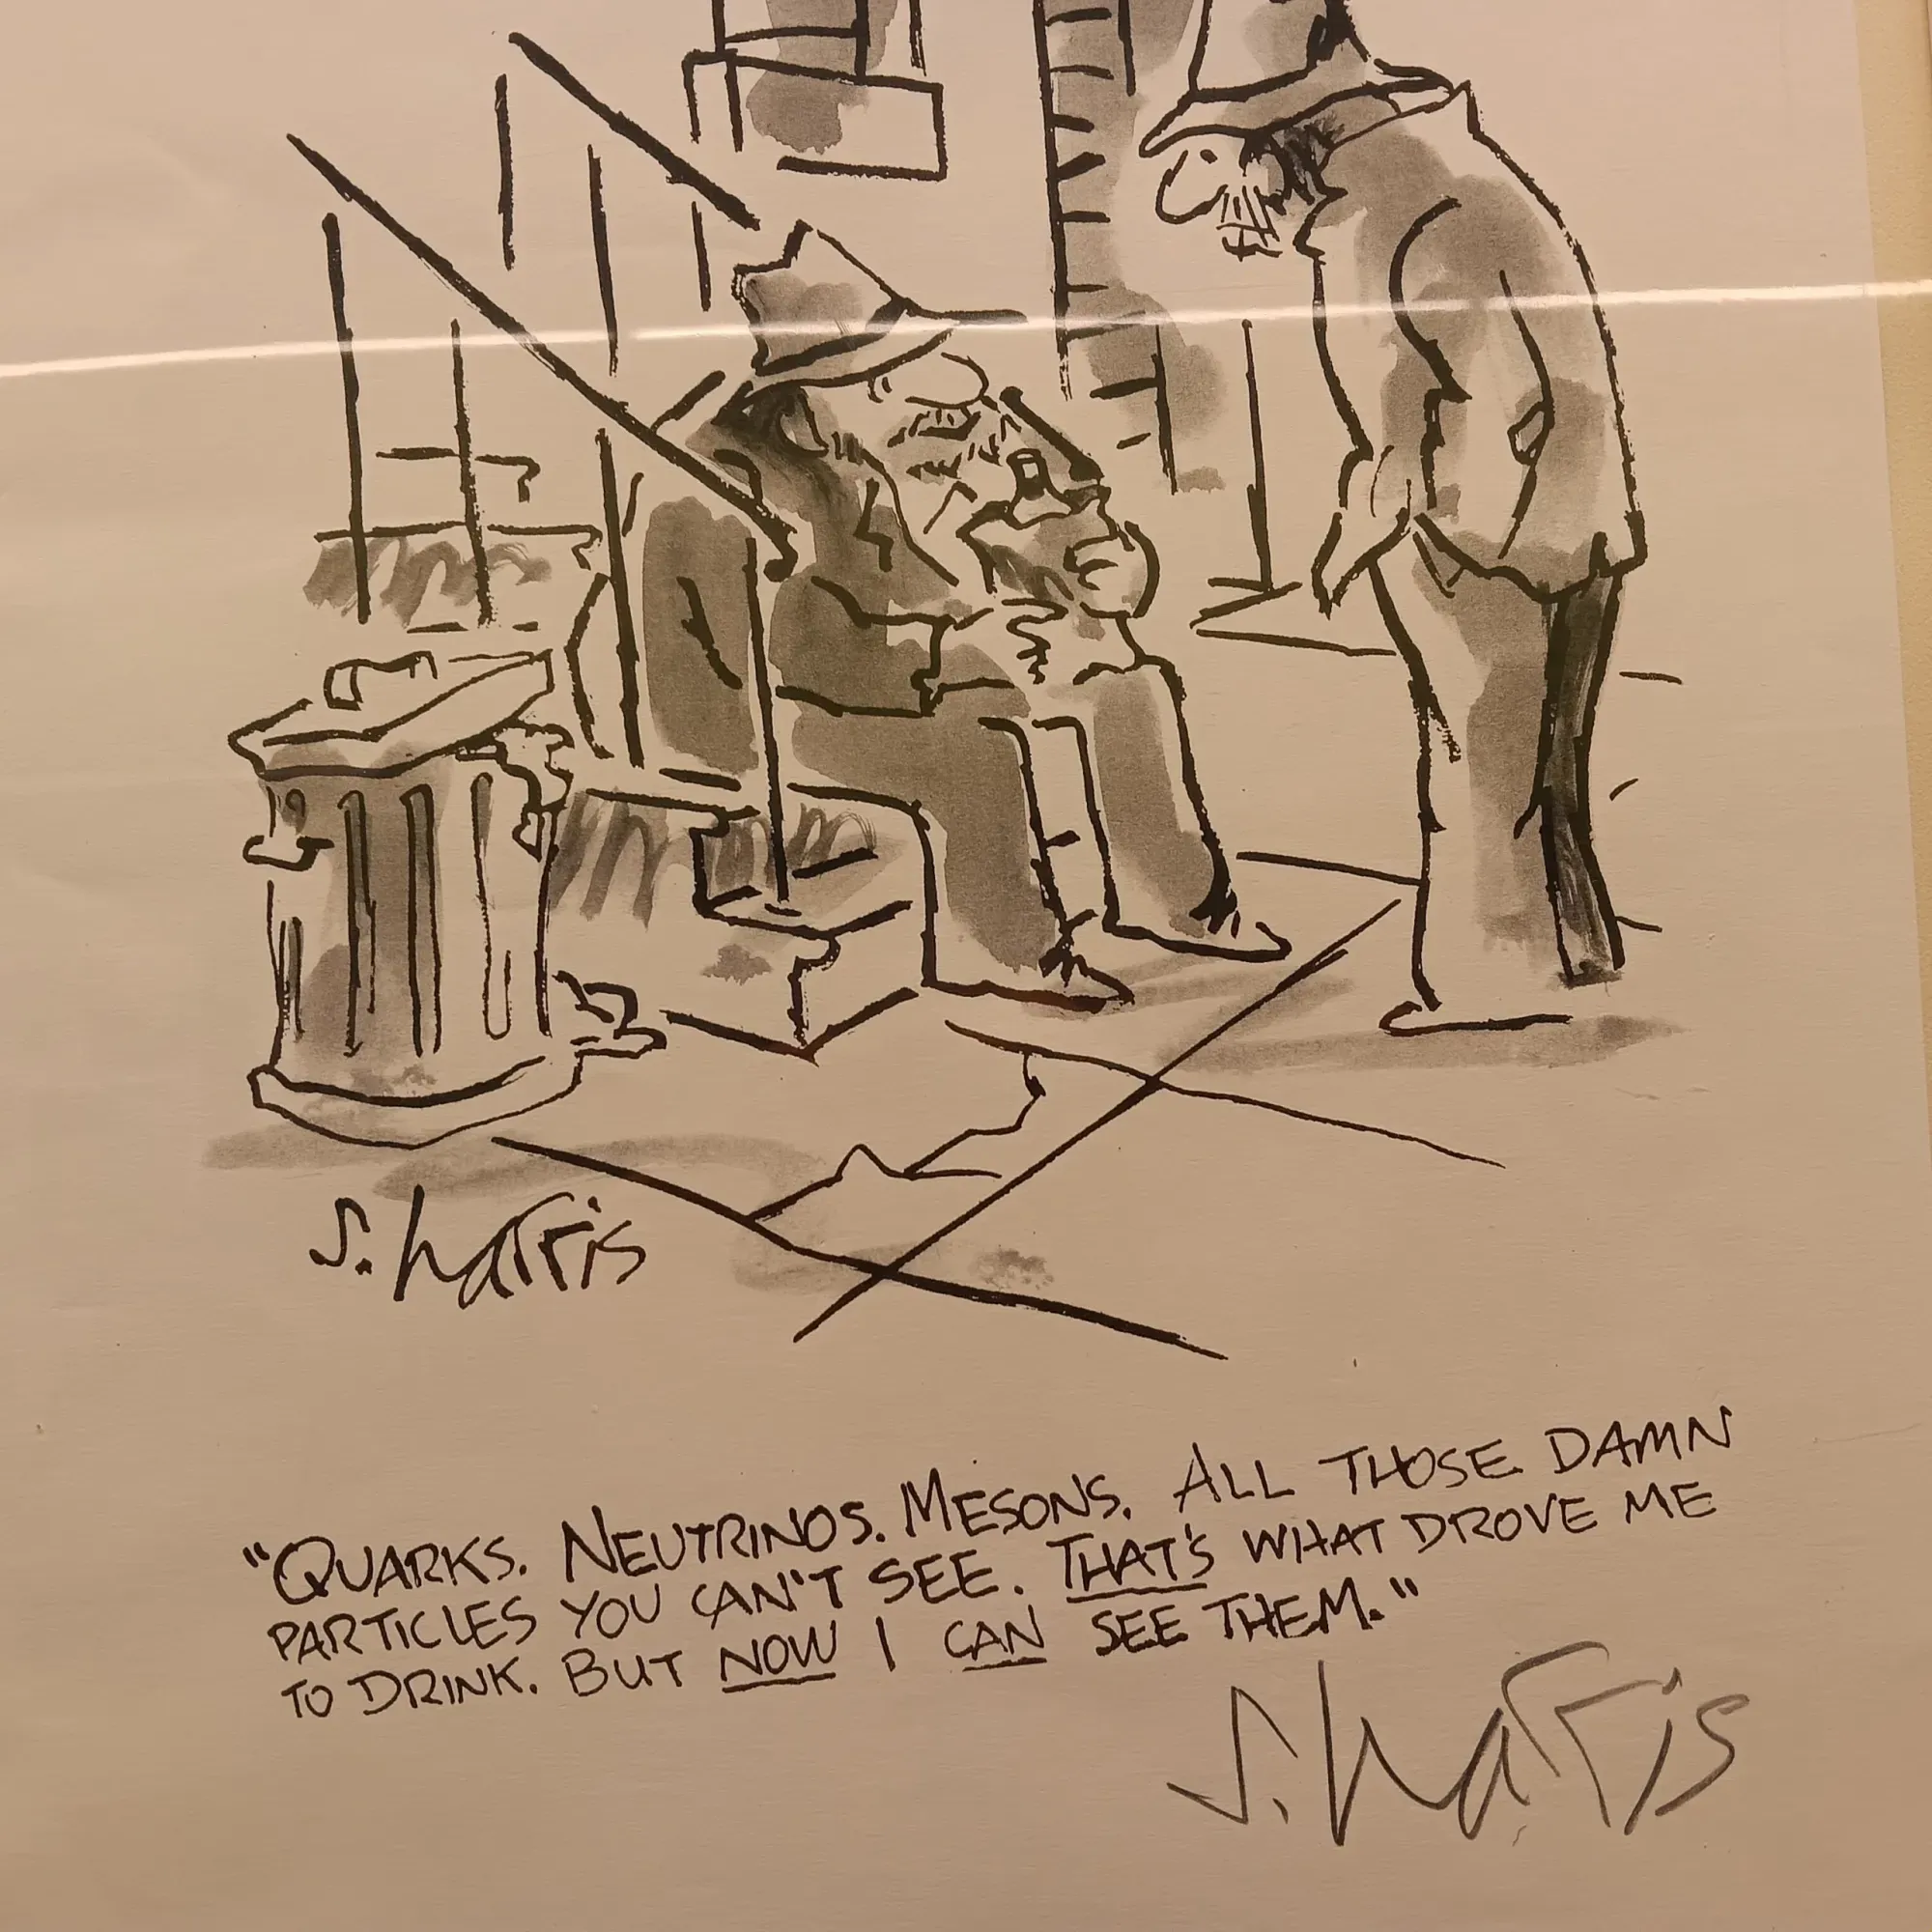 S. Harris
"QUARKS. NEUTRINOS. MESONS. ALL THOSE DAMN
PARTICLES YOU CAN'T SEE. THAT'S WHAT DROVE ME
TO DRINK. BUT NOW I CAN SEE THEM."
S. Harris